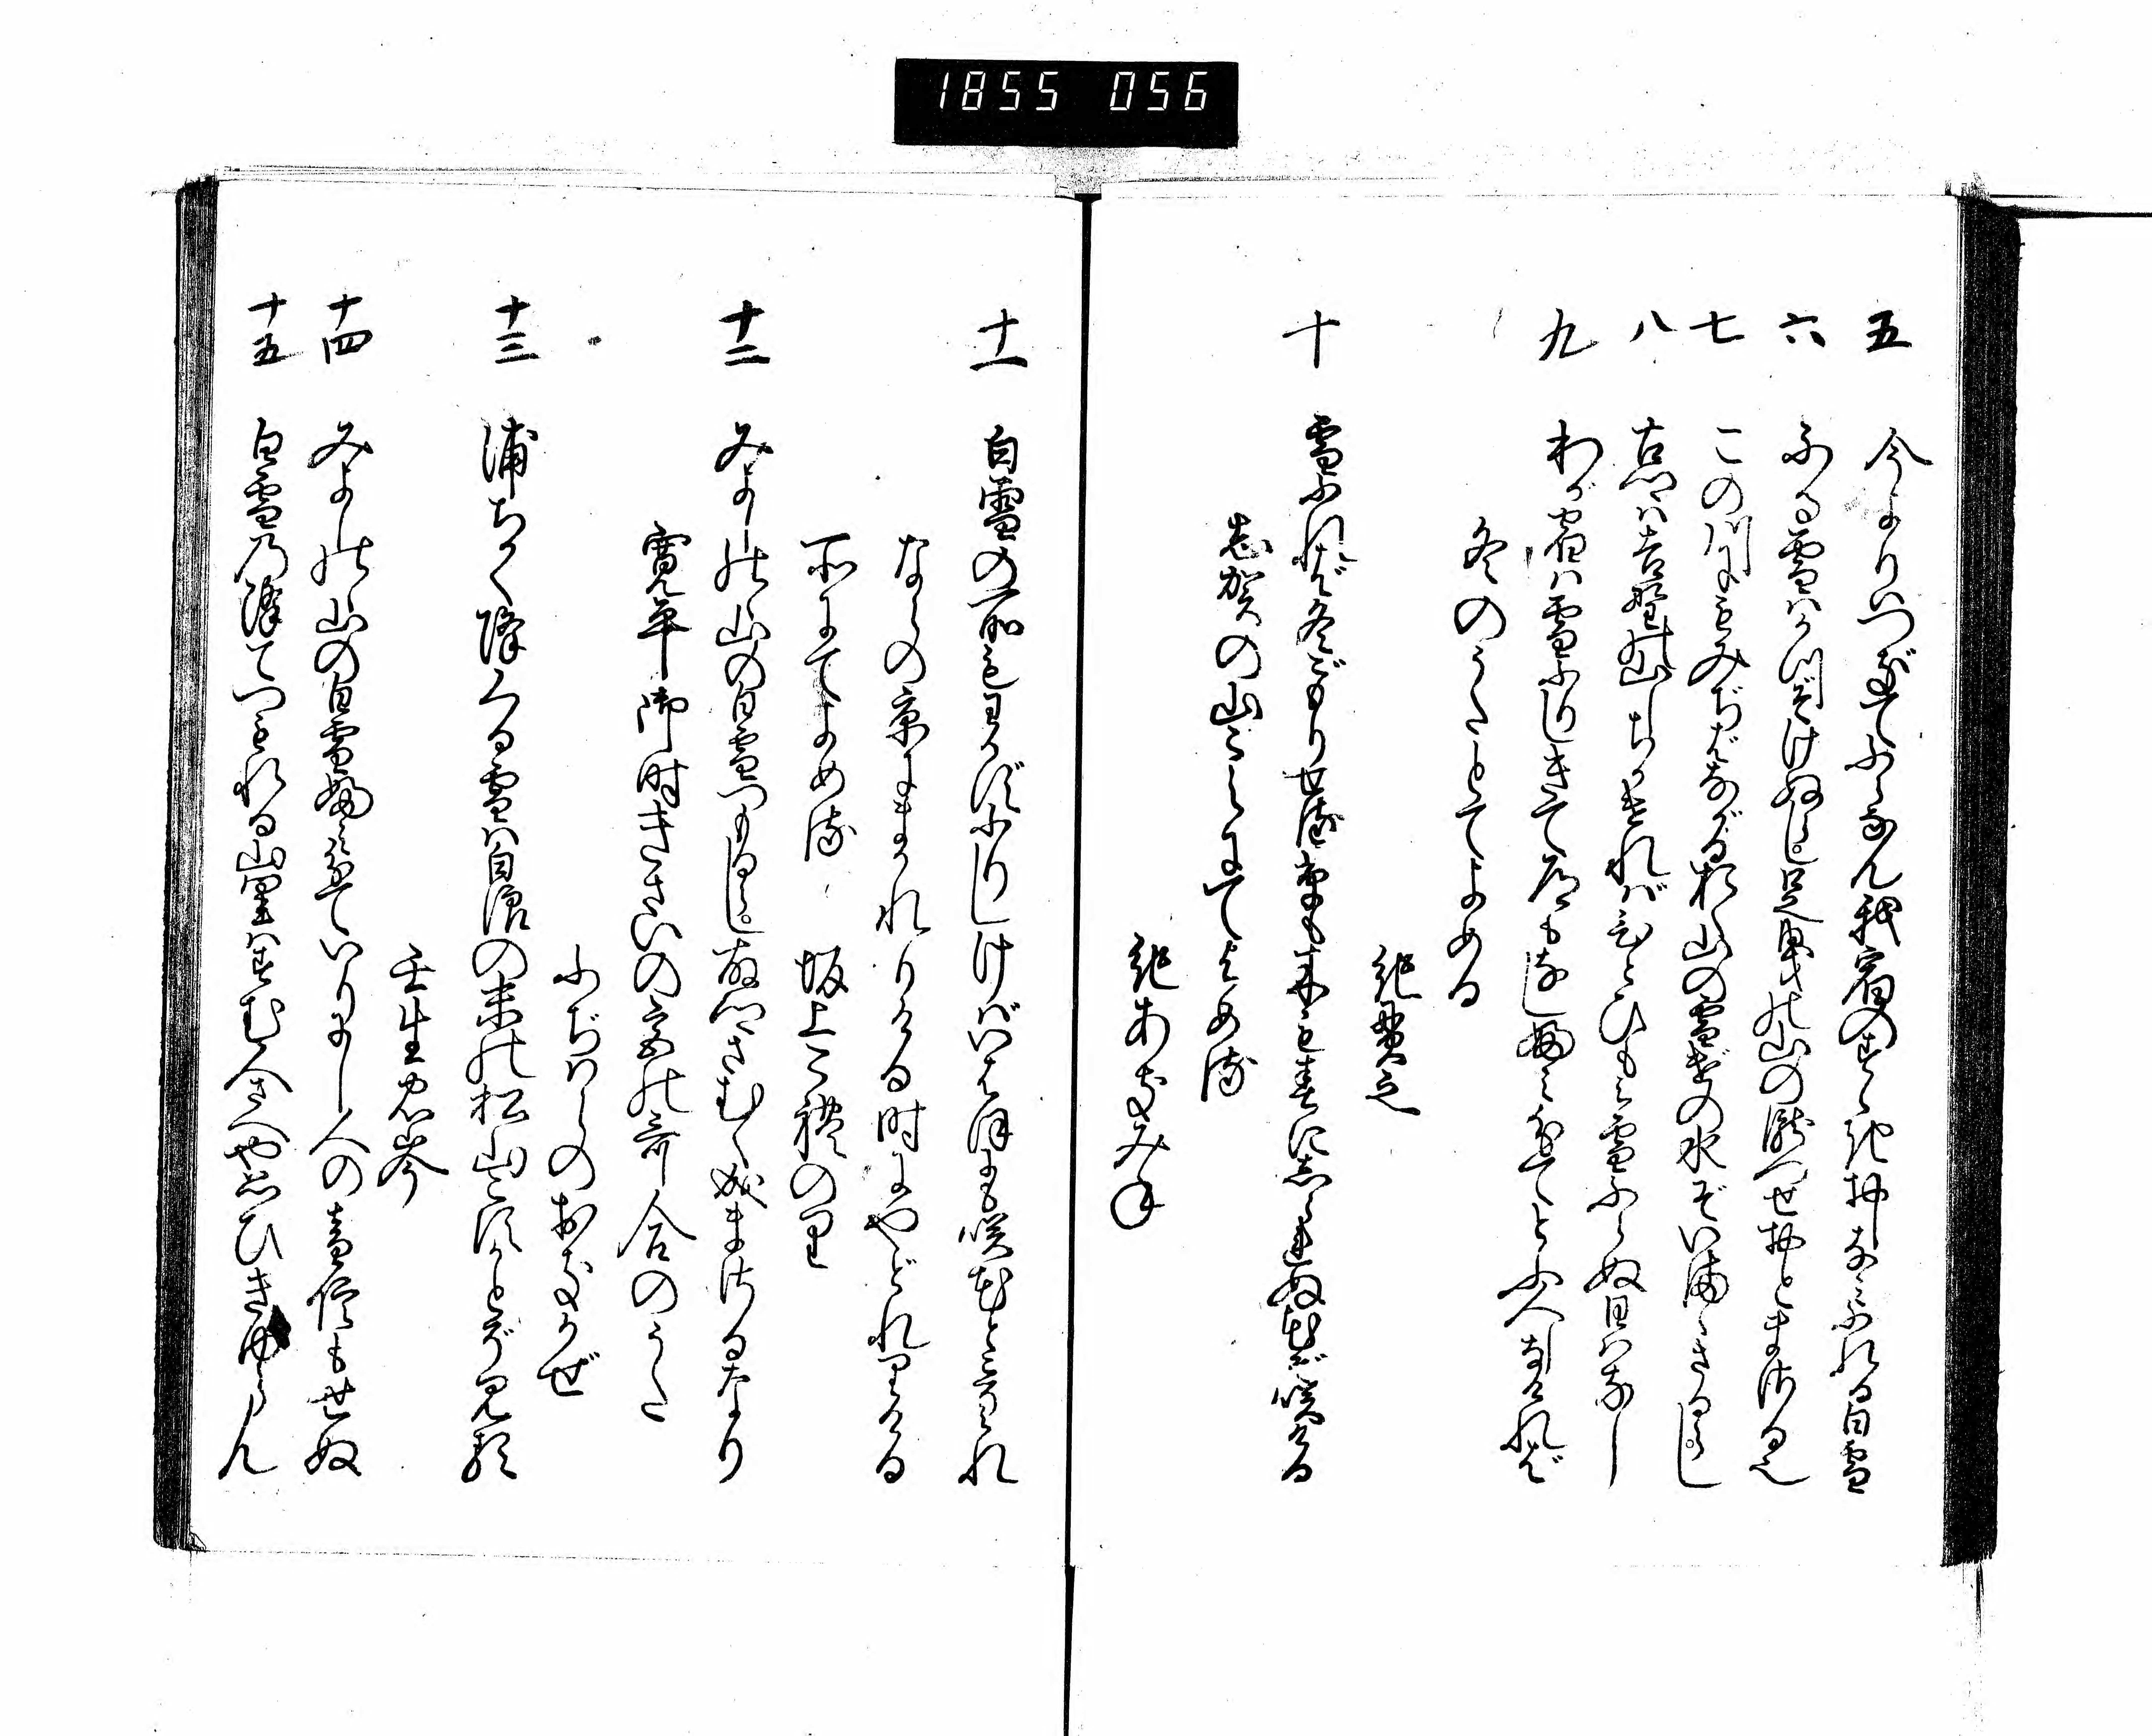 1855 056
五 今よりはつぎてふらなん我宿のすゝき押なみふれる白雪
六 ふる雪はかつぞけぬらし足曳の山の瀧つせ押とまさるめり
七 この川にもみぢばながる於く山の雪げの水ぞいままさるらし
八 古郷は吉野の山しちかければひとひもみ雪ふらぬ日はなし
九 わが宿は雪ふりしきて道もなし婦みわけてとふ人しなければ
冬のうたとてよめる
紀貫之
十 雪ふれば冬ごもりせる草も木も春に志られぬ花ぞ咲ける
志賀の山ごえにてよめる
紀あきみね
十一 白雪の所もわかずふりしければいはほにも咲花とこそみれ
ならの京にまかれりける時にやどれりける
所にてよめる 坂上これのり
十二 みよし能山の白雪つもるらし故郷さむく成まさるなり
寛平御時きさいの宮の哥合のうた
ふぢはらのおきかぜ
十三 浦ちかく降くる雪は白浪の末の松山こすかとぞ見る
壬生忠岑
十四 みよし能山の白雪婦み分ていりにし人の音信もせぬ
十五 白雪乃降てつもれる山里はすむ人さへや思ひきゆらん